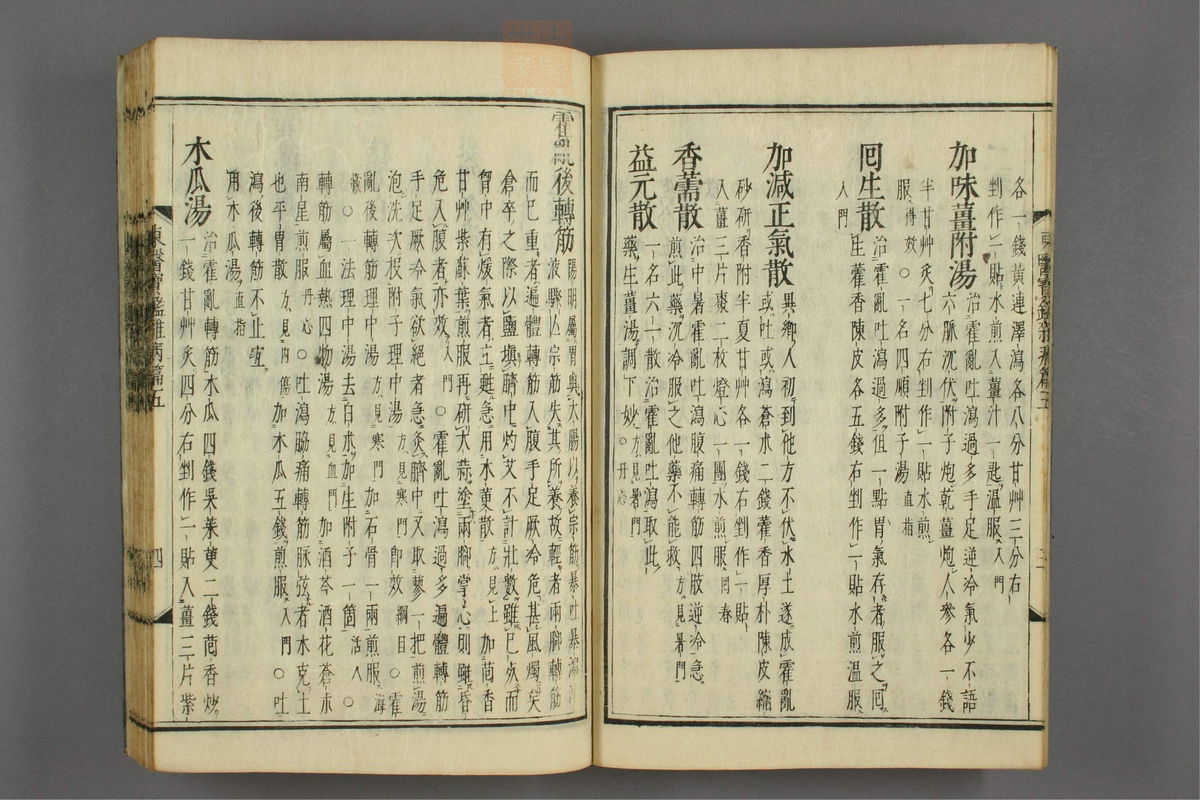 各一錢黃連澤瀉各八分甘艸三分右
剉作一貼水煎入薑汁一匙溫服入門
加味薑附湯治霍亂吐瀉過多手足逆冷氣少不語
六脉沉伏附子炮乾薑炮人參各一錢
半甘艸炙七分右剉作一貼水煎
服得效○一名四順附子湯直指
回生散治霍亂吐瀉過多但一點胃氣存者服之回
生藿香陳皮各五錢右剉作一貼水煎溫服
入門
加減正氣散異鄕人初到他方不伏水土遂成霍亂
或吐或瀉蒼朮二錢藿香厚朴陳皮縮
砂研香附半夏甘艸各一錢右剉作一貼
入薑三片棗二枚燈心一團水煎服回春
香薷散治中暑霍亂吐瀉腹痛轉筋四肢逆冷急
煎此藥沉冷服之他藥不能救方見暑門
益元散一名六一散治霍亂吐瀉取此
藥生薑湯調下妙方見暑門○丹心
霍亂後轉筋陽明屬胃與大陽以養宗筋暴吐暴瀉
液驟亾宗筋失其所養故輕者兩脚轉筋
而已重者遍體轉筋入腹手足厥冷危甚風燭矣
倉卒之際以鹽塡臍中灼艾不計壯數雖已死而
胷中有煖氣者立甦急用水萸散方見上加茴香
甘艸紫蘇葉煎服再研大蒜塗兩脚掌心則雖昏
危入腹者亦效入門○霍亂吐瀉過多遍體轉筋
手足厥冷氣欲絕者急灸臍中又取蓼一把煎湯
泡洗次投附子理中湯方見寒門卽效綱目○霍
亂後轉筋理中湯方見寒門加石膏一兩煎服海
藏○一法理中湯去白朮加生附子一箇活人○
轉筋屬血熱四物湯方見血門加酒芩酒花蒼朮
南星煎服丹心○吐瀉脇痛轉筋脉弦者木克土
也平胃散方見內傷加木瓜五錢煎服入門○吐
瀉後轉筋不止宜
用木瓜湯直指
木瓜湯治霍亂轉筋木瓜四錢吳茱萸二錢茴香炒
一錢甘艸炙四分右剉作一貼入薑三片紫
東醫寶鑑雜病篇五
四